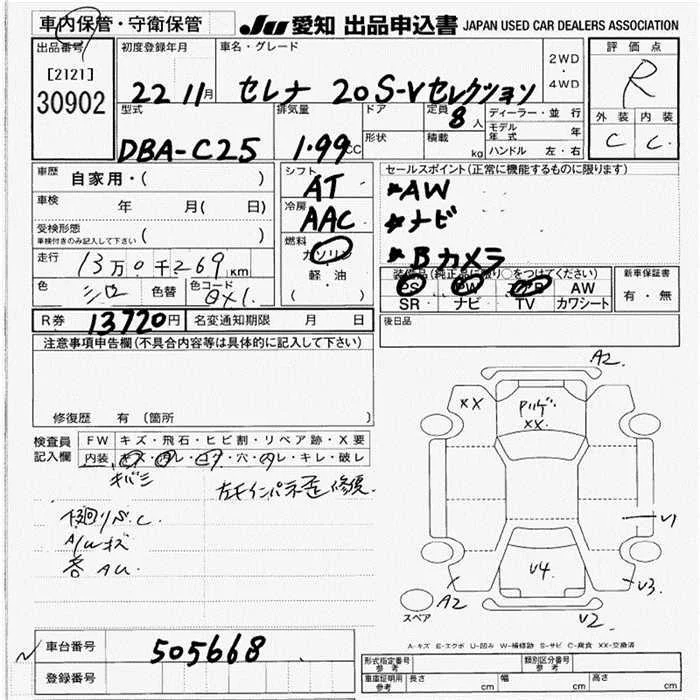 車内保管・守衛保管
JU 愛知 出品申込書 JAPAN USED CAR DEALERS ASSOCIATION
出品番号
[2121]
30902
初度登録年月
22 11月
車名・グレード
セレナ 20S-Vセレクション
2WD
・
4WD
評価点
R
外装 内装
C C
型式
DBA-C25
排気量
1.99 CC
ドア
形状
定員
8人
積載
kg
ディーラー・並行
モデル年式 年
ハンドル 左・右
車歴 自家用・( )
車検 年 月( 日)
受検形態
車検付きのみ記入して下さい ( )
走行 13万0千269 KM
色 シロ 色替 色コード QX1
シフト
AT
冷房
AAC
燃料
ガソリン
軽油
( )
セールスポイント(正常に機能するものに限ります)
*AW
*ナビ
*Bカメラ
装備品(純正品に限り○をつけてください)
PS PW AW
SR ナビ TV カワシート
新車保証書
有・無
R券 13720円 名変通知期限 月 日
後日品
注意事項申告欄(不具合内容等は具体的に記入して下さい)
修復歴 有 (箇所 )
検査員記入欄
FW キズ・飛石・ヒビ割・リペア跡・X要
内装 キズ・汚レ・コゲ・穴・スレ・キレ・破レ
キバミ
左インパネ歪 修復
下廻りS.C.
A/Wキズ
各AU.
A2
XX
XX
U1
U4
U3
A2
U2
スペア
A-キズ E-エクボ U-凹み W-補修跡 S-サビ C-腐食 XX-交換済
車台番号 505668
登録番号
形式指定番号 参考
類別区分番号 参考
車庫証明用 参考 長さ cm 幅 cm 高さ cm